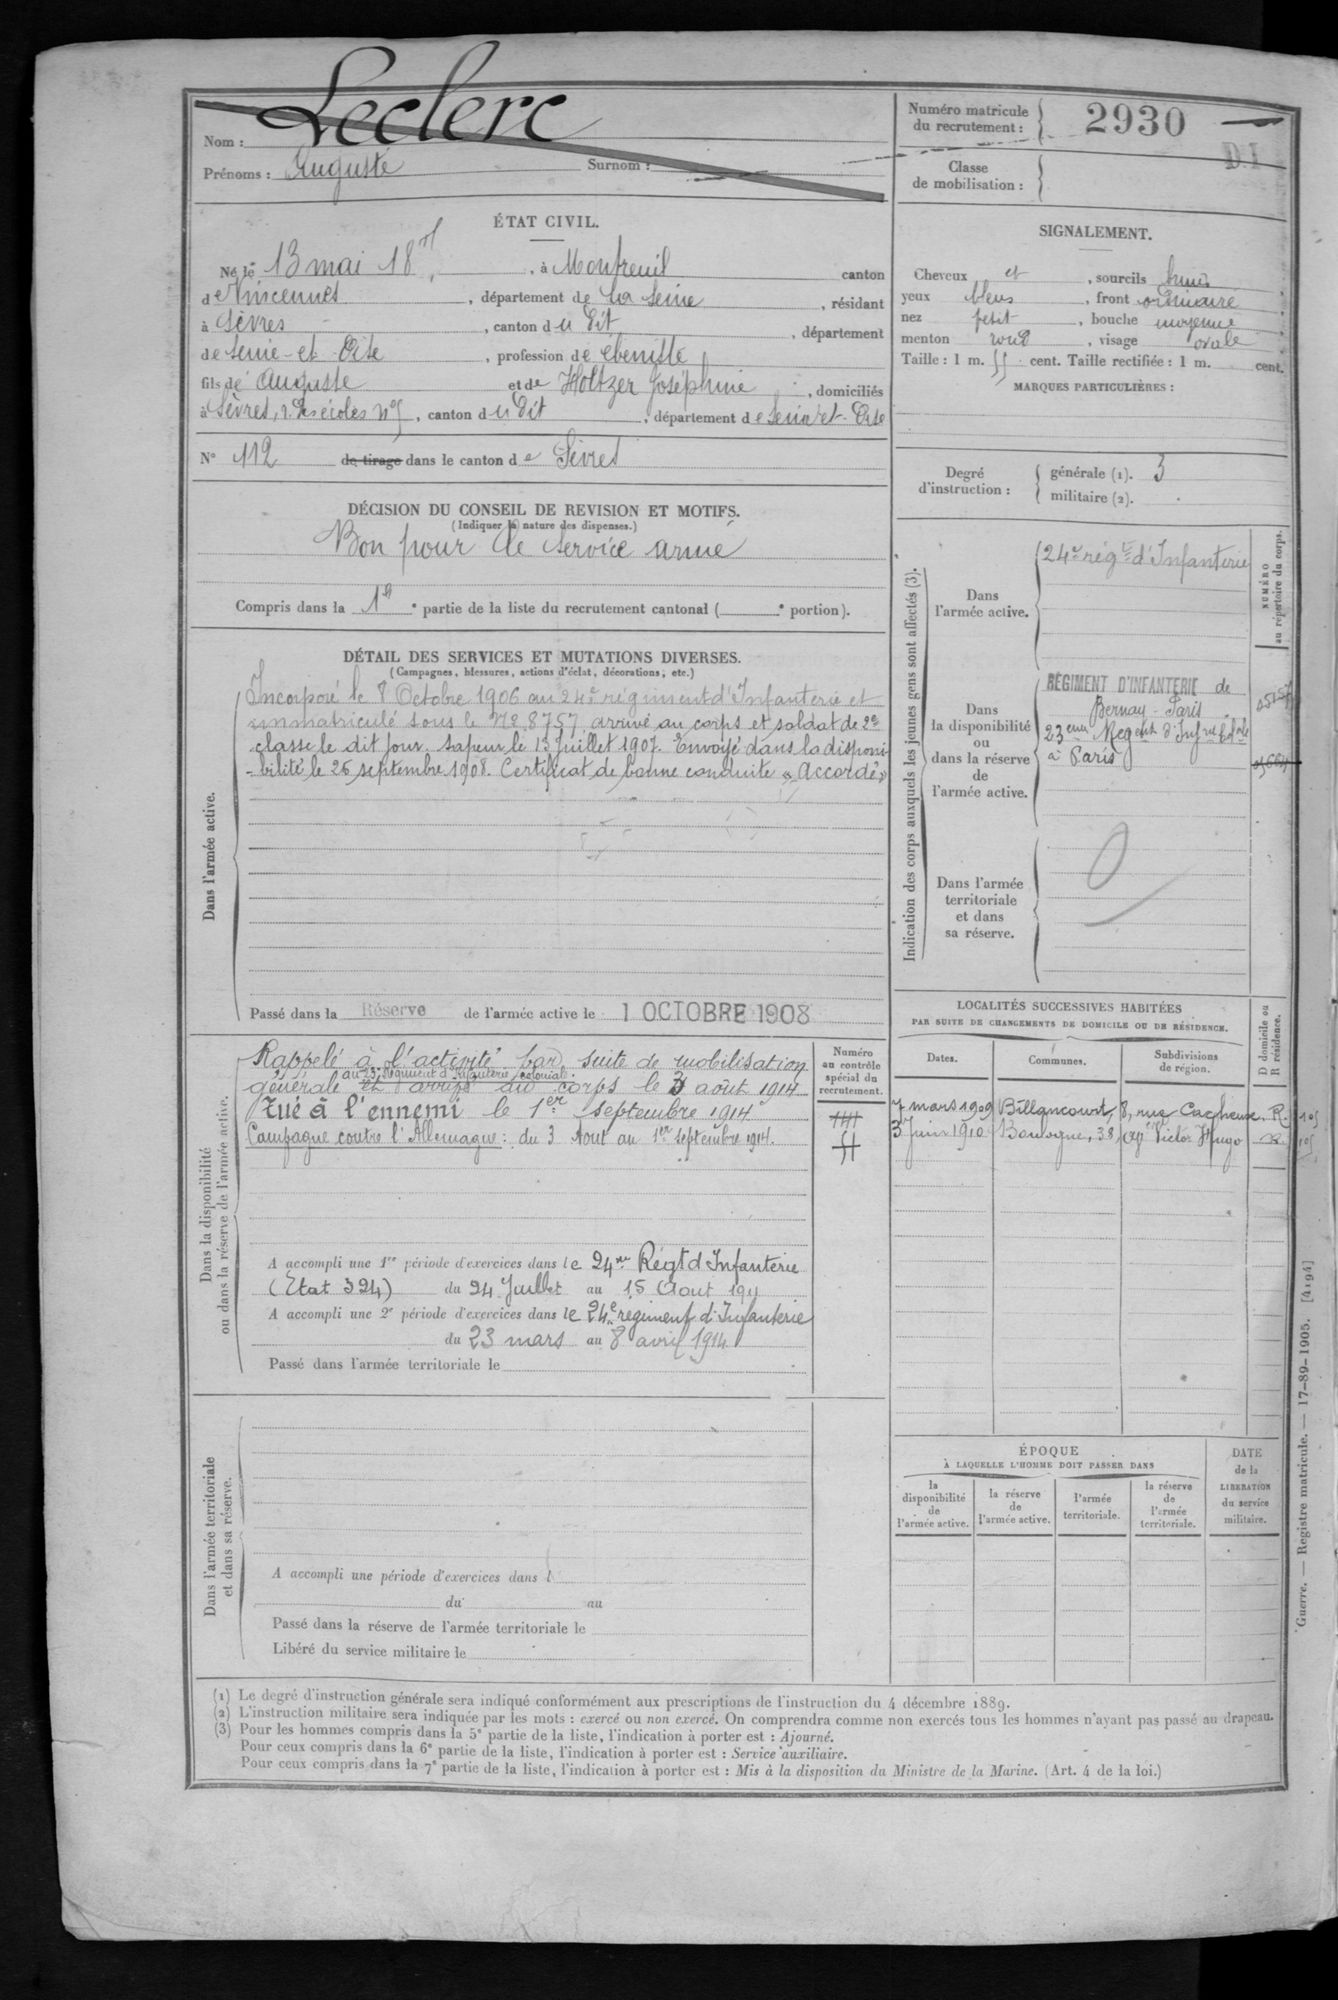 Nom : Leclerc
Prénoms : Auguste Surnom :
ÉTAT CIVIL.
Né le 13 mai 18 , à Montreuil canton
de Vincennes , département de la Seine , résidant
à Sèvres , canton du dit , département
de Seine-et-Oise , profession de ébéniste
fils de Auguste et de Holtzer Joséphine , domiciliés
à Sèvres, r. des écoles n° 5 , canton du dit , département de Seine et-Oise
N° 112 de tirage dans le canton de Sèvres
DÉCISION DU CONSEIL DE REVISION ET MOTIFS.
(Indiquer la nature des dispenses.)
Bon pour le service armé
Compris dans la 1re e partie de la liste du recrutement cantonal ( e portion).
DÉTAIL DES SERVICES ET MUTATIONS DIVERSES.
(Campagnes, blessures, actions d'éclat, décorations, etc.)
Dans l'armée active.
Incorporé le 8 Octobre 1906 au 24e régiment d'Infanterie et
immatriculé sous le N° 8757, arrivé au corps et soldat de 2e
classe le dit jour. Sapeur le 13 Juillet 1907. Envoyé dans la disponi
-bilité le 26 septembre 1908. Certificat de bonne conduite « Accordé »
Passé dans la Réserve de l'armée active le 1 OCTOBRE 1908
Dans la disponibilité
ou dans la réserve de l'armée active.
Rappelé à l'activité par suite de mobilisation
au 23e Régiment d'Infanterie coloniale.
générale et arrivé au corps le 3 août 1914
Tué à l'ennemi le 1er septembre 1914
Campagne contre l'Allemagne : du 3 Aout au 1er septembre 1914.
A accompli une 1re période d'exercices dans le 24me Régt d'Infanterie
(Etat 324) du 24 Juillet au 15 Aout 1911
A accompli une 2e période d'exercices dans le 24e régiment d'Infanterie
du 23 mars au 8 avril 1914
Passé dans l'armée territoriale le
Numéro
au contrôle
spécial du
recrutement.
Dans l'armée territoriale
et dans sa réserve.
A accompli une période d'exercices dans l
du au
Passé dans la réserve de l'armée territoriale le
Libéré du service militaire le
Numéro matricule
du recrutement : 2930
Classe
de mobilisation :
SIGNALEMENT.
Cheveux et , sourcils bruns
yeux bleus , front ordinaire
nez petit , bouche moyenne
menton rond , visage ovale
Taille : 1 m. 55 cent. Taille rectifiée : 1 m. cent.
MARQUES PARTICULIÈRES :
Degré
d'instruction :
générale (1). 3
militaire (2).
Indication des corps auxquels les jeunes gens sont affectés (3).
NUMÉRO
au répertoire du corps.
Dans
l'armée active.
24e régt d'Infanterie
Dans
la disponibilité
ou
dans la réserve
de
l'armée active.
RÉGIMENT D'INFANTERIE de
Bernay - Paris
23eme Régent d'Infrie Colale
à Paris
Dans l'armée
territoriale
et dans
sa réserve.
LOCALITÉS SUCCESSIVES HABITÉES
PAR SUITE DE CHANGEMENTS DE DOMICILE OU DE RÉSIDENCE.
D domicile ou
R résidence.
Dates. Communes. Subdivisions
de région.
7 mars 1909 Billancourt, 8, rue Cacheux R.
3 Juin 1910 Boulogne, 38, Victor Hugo R
ÉPOQUE
À LAQUELLE L'HOMME DOIT PASSER DANS
la
disponibilité
de
l'armée active.
la réserve
de
l'armée active.
l'armée
territoriale.
la réserve
de
l'armée
territoriale.
DATE
de la
LIBÉRATION
du service
militaire.
Guerre. — Registre matricule. — 17-89-1905. [4194]
(1) Le degré d'instruction générale sera indiqué conformément aux prescriptions de l'instruction du 4 décembre 1889.
(2) L'instruction militaire sera indiquée par les mots : exercé ou non exercé. On comprendra comme non exercés tous les hommes n'ayant pas passé au drapeau.
(3) Pour les hommes compris dans la 5e partie de la liste, l'indication à porter est : Ajourné.
Pour ceux compris dans la 6e partie de la liste, l'indication à porter est : Service auxiliaire.
Pour ceux compris dans la 7e partie de la liste, l'indication à porter est : Mis à la disposition du Ministre de la Marine. (Art. 4 de la loi.)